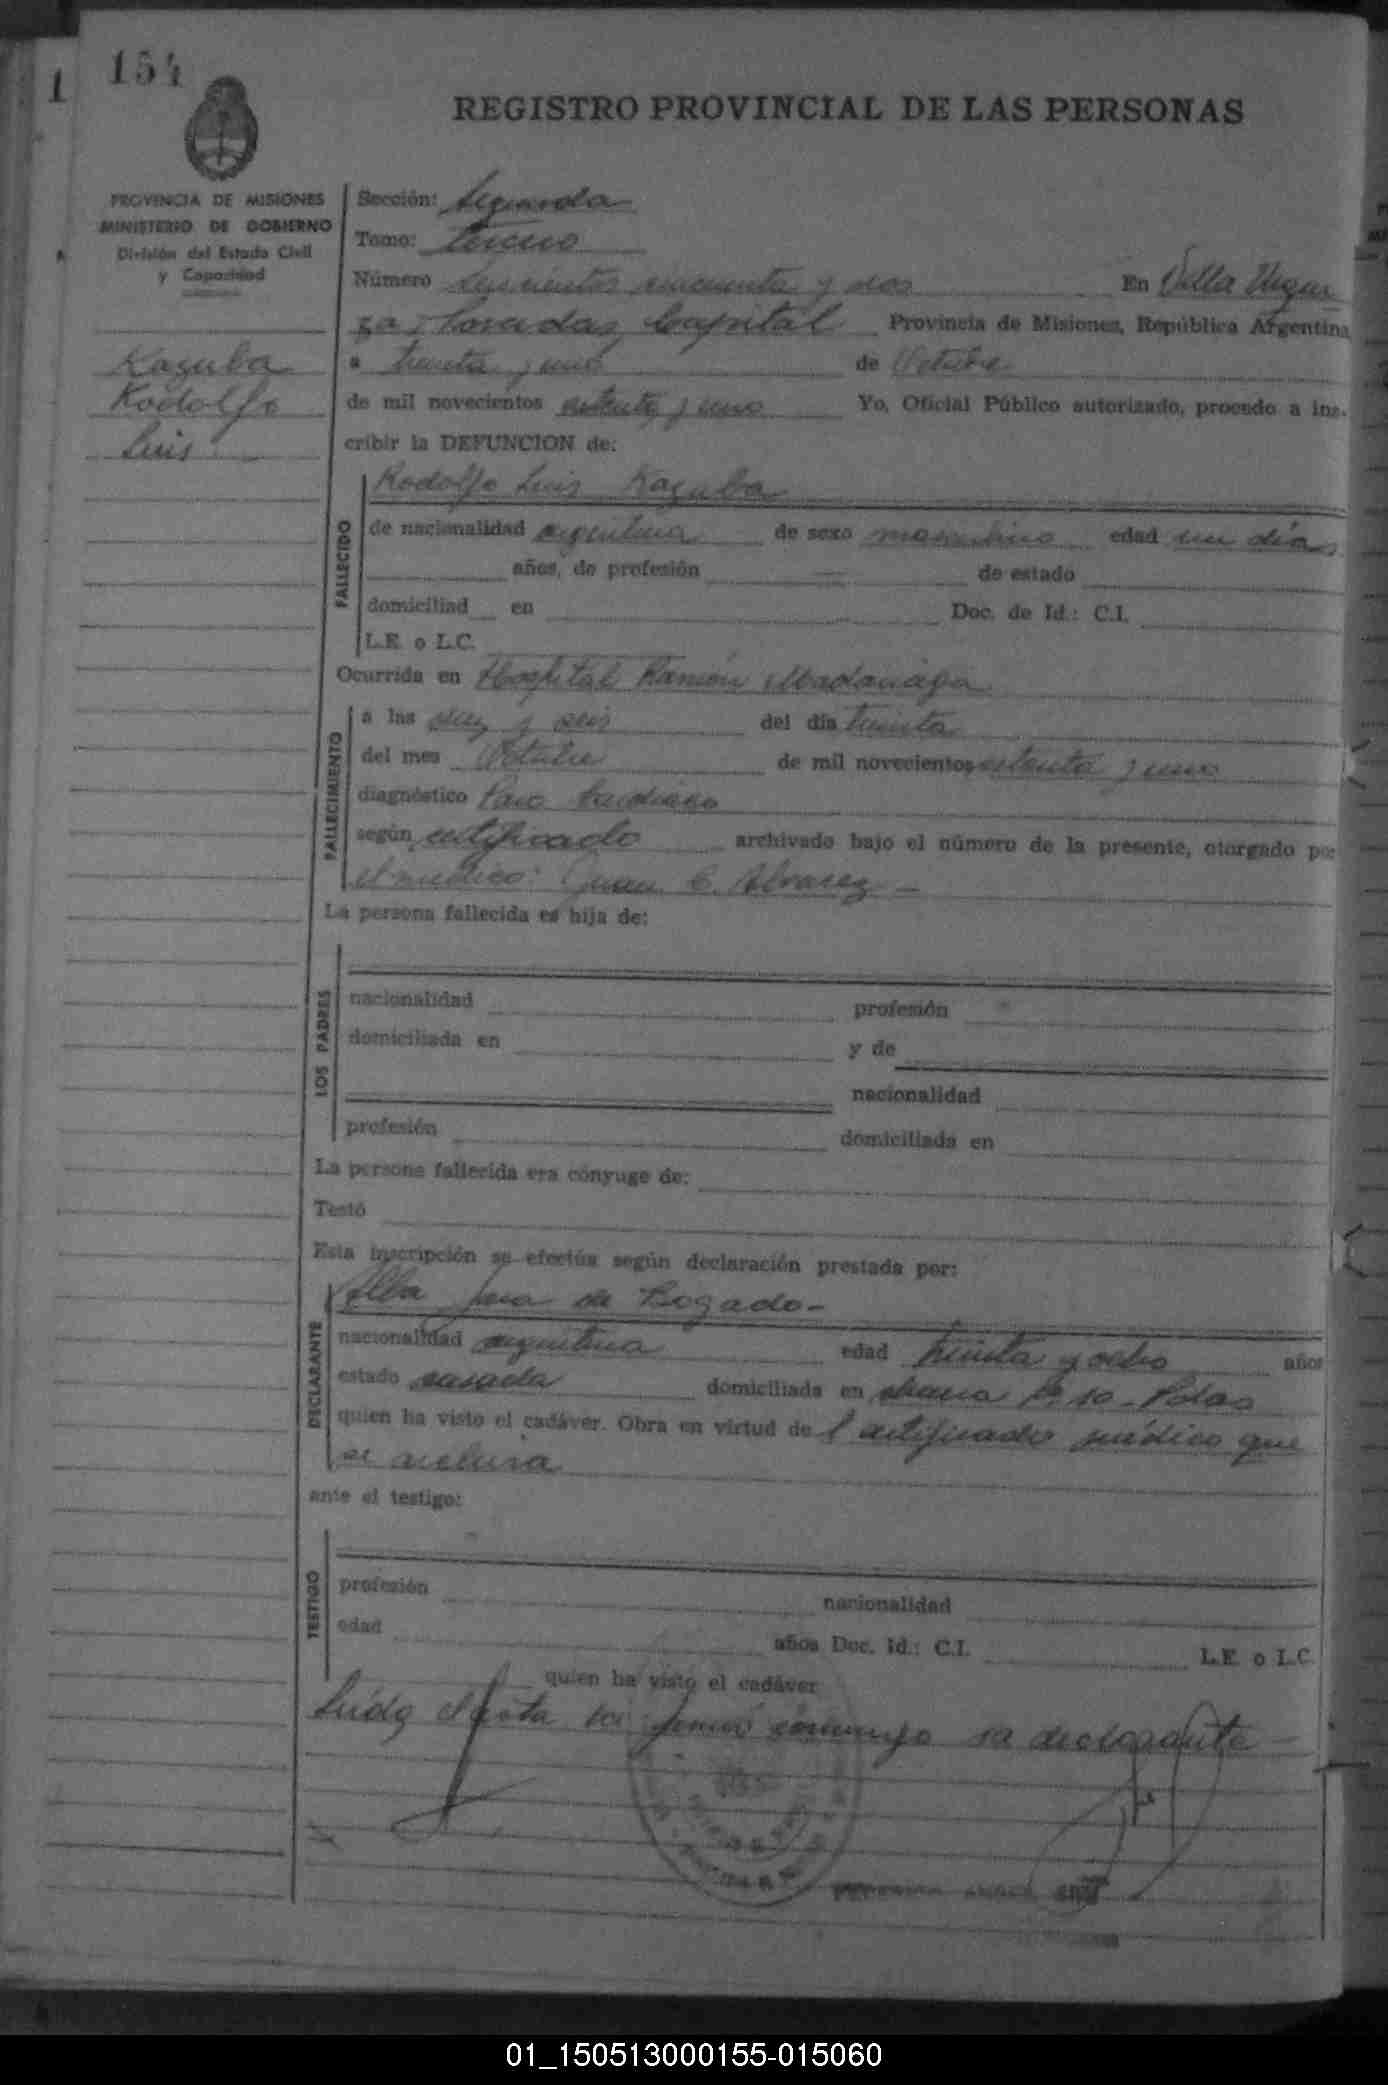 154
1
REGISTRO PROVINCIAL DE LAS PERSONAS
PROVINCIA DE MISIONES
MINISTERIO DE GOBIERNO
División del Estado Civil
y Capacidad
Kaguba
Rodolfo
Luis
Sección: Segunda
Tomo: Tercero
Número seiscientos cincuenta y dos En Villa Urqui
za, Posadas, Capital Provincia de Misiones, República Argentina
a treinta y uno de Octubre
de mil novecientos setenta y uno Yo, Oficial Público autorizado, procedo a ins-
cribir la DEFUNCION de:
FALLECIDO
Rodolfo Luis Kaguba
de nacionalidad argentina de sexo masculino edad un días
años, de profesión — de estado
domiciliad en Doc. de Id.: C.I.
L.E. o L.C.
Ocurrida en Hospital Ramón Madariaga
FALLECIMIENTO
a las diez y seis del día treinta
del mes Octubre de mil novecientos setenta y uno
diagnóstico Paro Cardíaco
según certificado archivado bajo el número de la presente, otorgado por
el médico: Juan C. Alvarez —
La persona fallecida es hija de:
LOS PADRES
nacionalidad profesión
domiciliada en y de
nacionalidad
profesión domiciliada en
La persona fallecida era cónyuge de:
Testó
Esta inscripción se efectúa según declaración prestada por:
DECLARANTE
Alba Jara de Bogado-
nacionalidad argentina edad treinta y ocho años
estado casada domiciliada en chacra Nº 10 - Pdas
quien ha visto el cadáver. Obra en virtud de l certificado médico que
se archiva
ante el testigo:
TESTIGO
profesión nacionalidad
edad años Doc. Id.: C.I. L.E. o L.C.
quien ha visto el cadáver
Leída el acta la firmó conmigo la declarante —
01_150513000155-015060